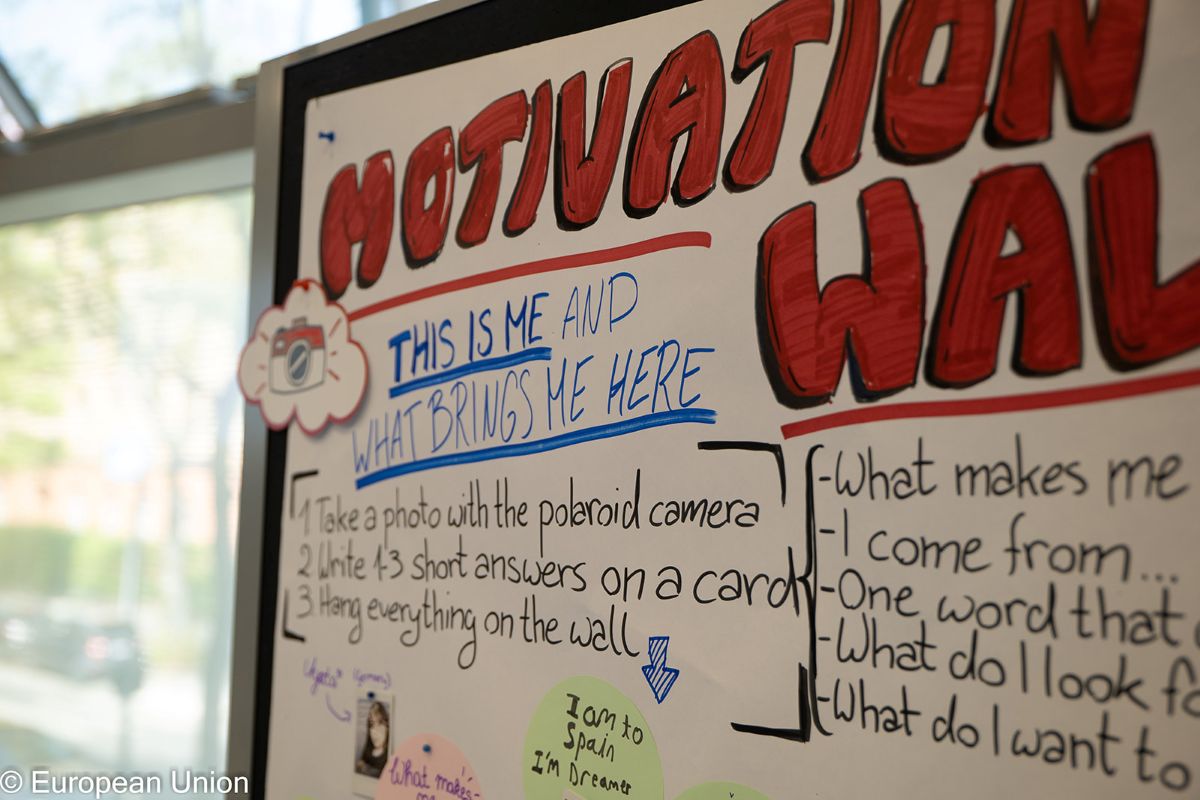 MOTIVATION
WAL
THIS IS ME AND
WHAT BRINGS ME HERE
1. Take a photo with the polaroid camera
2. Write 1-3 short answers on a card
3. Hang everything on the wall
-What makes me
-I come from...
-One word that
-What do I look fo
-What do I want to
I am to
Spain
I'm Dreamer
What makes
© European Union